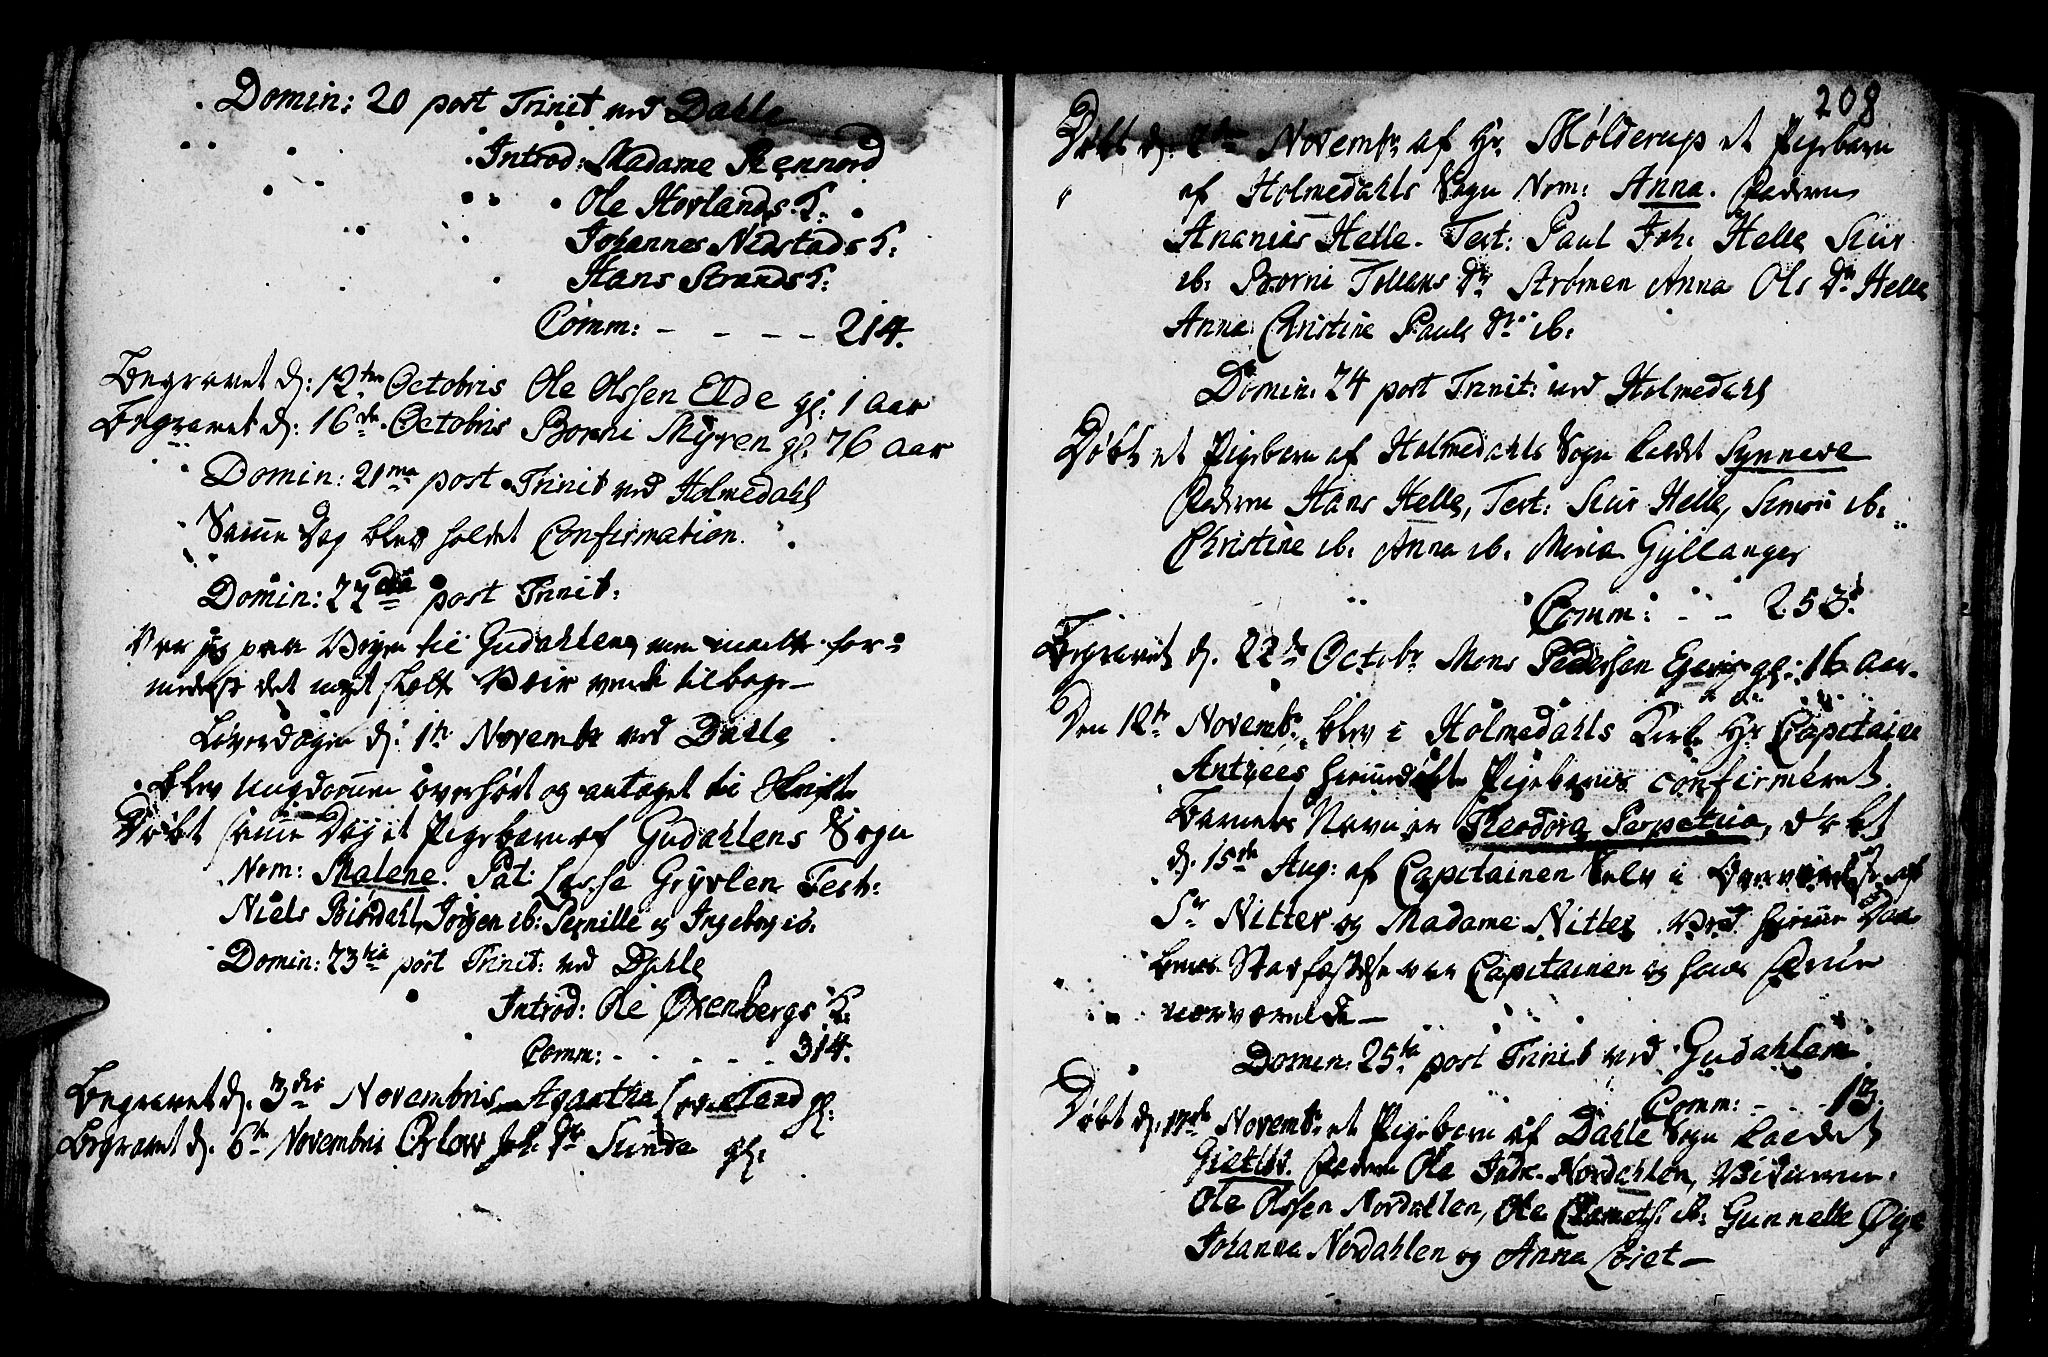 Domin: 20 post Trinit ved Dahle
Introd: Madame Rennord
Ole Hovlands K:
Johannes Nedstads K:
Hans Strands K:
Comm: - - - - 214.
Begravet d: 12te Octobris Ole Olssen Elde gl: 1 Aar
Begravet d: 16de Octobris Borni Myren gl: 76 Aar
Domin: 21ma post Trinit ved Holmedahl
Samme Dag blev holdet Confirmation.
Domin: 22da post Trinit:
Var jeg paa Veyen til Gudahlen, men maatte for-
medelst det meget slette Veir vende tilbage -
Løverdagen d: 1te Novembr ved Dahle
blev Ungdommen overhørt og antaget til Skrifte
Døbt samme Dag et Pigebarn af Gudahlens Sogn
Nom: Malene. Pat: Lasse Gryvlen Test:
Niels Birdahl, Jørgen ib: Pernille og Ingeborg ib.
Domin: 23tia post Trinit: ved Dahle
Introd: Ole Oxenbergs K:
Comm: - - - - - 314.
Begravet d. 3die Novembris Agantha gl:
Begravet d. 6te Novembris Joh: Dr Sunde gl:
208
Døbt d: Novembr af Hr. Mølderup et Pigebarn
af Holmedahls Sogn Nom: Anna. Faderen
Ananias Helle. Test: Paul Joh: Helle Siur
ib: Borni Tollens Dr Strømen Anna Ols Dr Helle
Anna Christine Pauls Dr ib:
Domin: 24 post Trinit: ved Holmedahl
Døbt et Pigebarn af Holmedahls Sogn kaldet Synneve
Faderen Hans Helle, Test: Siur Helle, Simon ib:
Christine ib. Anna ib. Maria Gyllanger
Comm: - - 253.
Begravet d. 22de Octobr Mons Pedersen gl: 16 Aar.
Den 12te Novembr. blev i Holmedahls Kirke Hr Capitaine
Antzées hiemmedøbte Pigebarns confirmeret
Barnets Navn er Theodora Perpetua, døbt
d. 15de Aug: af Capitainen Selv i Overværelse af
Sr Nitter og Madame Nitter. Ved hiemme Daa-
bens Stadfæstelse var Capitainen og hans Frue
nærværende -
Domin: 25ta post Trinit ved Gudahlen
Comm: - - 13.
Døbt d: 17de Novembr et Pigebarn af Dahle Sogn kaldet
Faderen Ole Nordahlen, Vidnerne:
Ole Olssen Nordahlen, Ole ib: Gunnelle Øye
Johanna Nordahlen og Anna Løset -